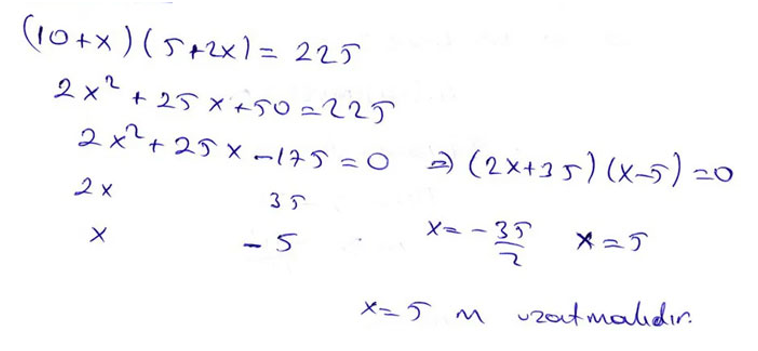 (10+x)(5+2x)=225
2x²+25x+50=225
2x²+25x-175=0 ⇒ (2x+35)(x-5)=0
2x 35
x -5 x=-35/2 x=5
x=5 m uzatmalıdır.